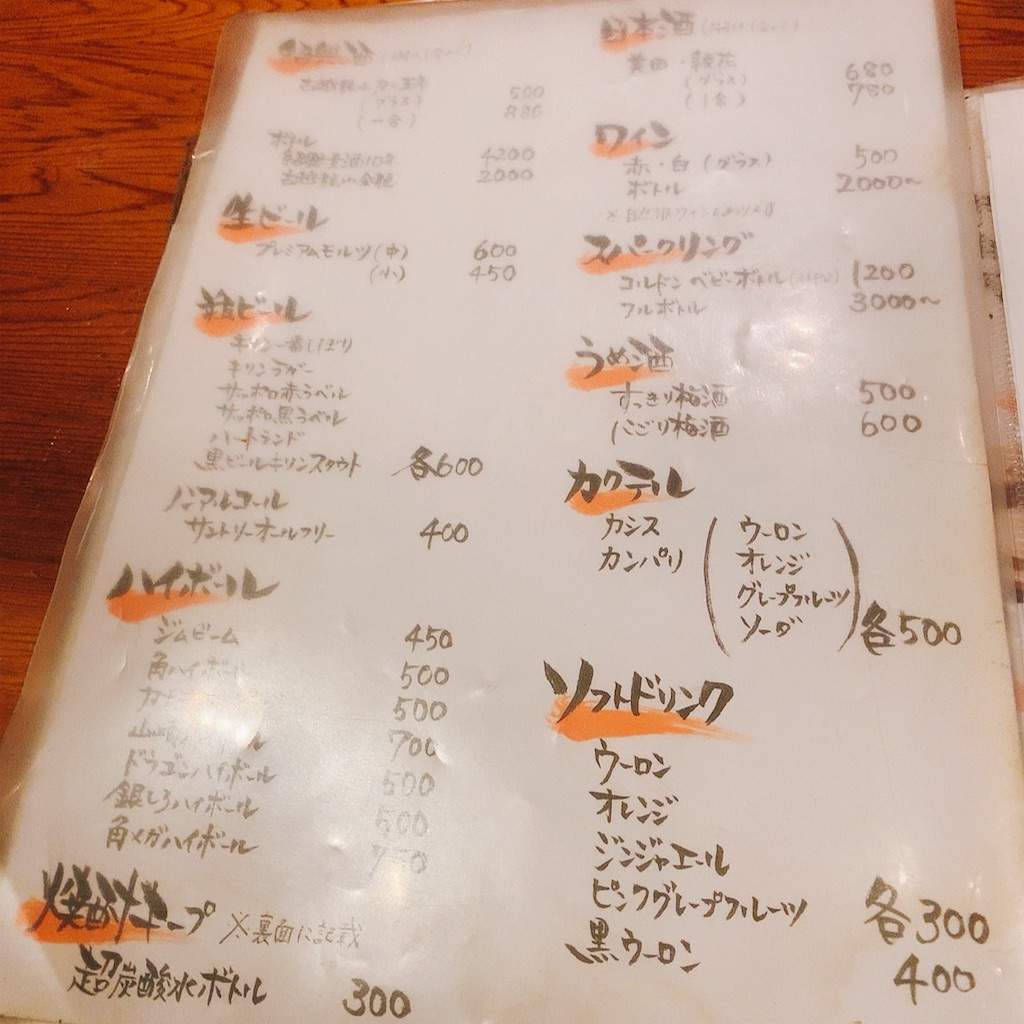 (グラス) 500
(一合) 880
ボトル
4200
2000
生ビール
プレミアムモルツ(中) 600
(小) 450
ビール
キリン一番しぼり
キリンラガー
サッポロ赤ラベル
サッポロ黒ラベル
ハートランド
黒ビールキリンスタウト 各600
ノンアルコール
サントリーオールフリー 400
ハイボール
ジムビーム 450
角ハイボール 500
500
山崎 700
ドラゴンハイボール 500
銀しろハイボール 500
角メガハイボール
キープ ※裏面に記載
超炭酸水ボトル 300
日本酒
(グラス) 680
(1合) 780
ワイン
赤・白(グラス) 500
ボトル 2000〜
スパークリング
コルドン ベビーボトル 1200
フルボトル 3000〜
うめ酒
すっきり梅酒 500
にごり梅酒 600
カクテル
カシス
カンパリ
(ウーロン
オレンジ
グレープフルーツ
ソーダ) 各500
ソフトドリンク
ウーロン
オレンジ
ジンジャエール
ピンクグレープフルーツ 各300
黒ウーロン 400